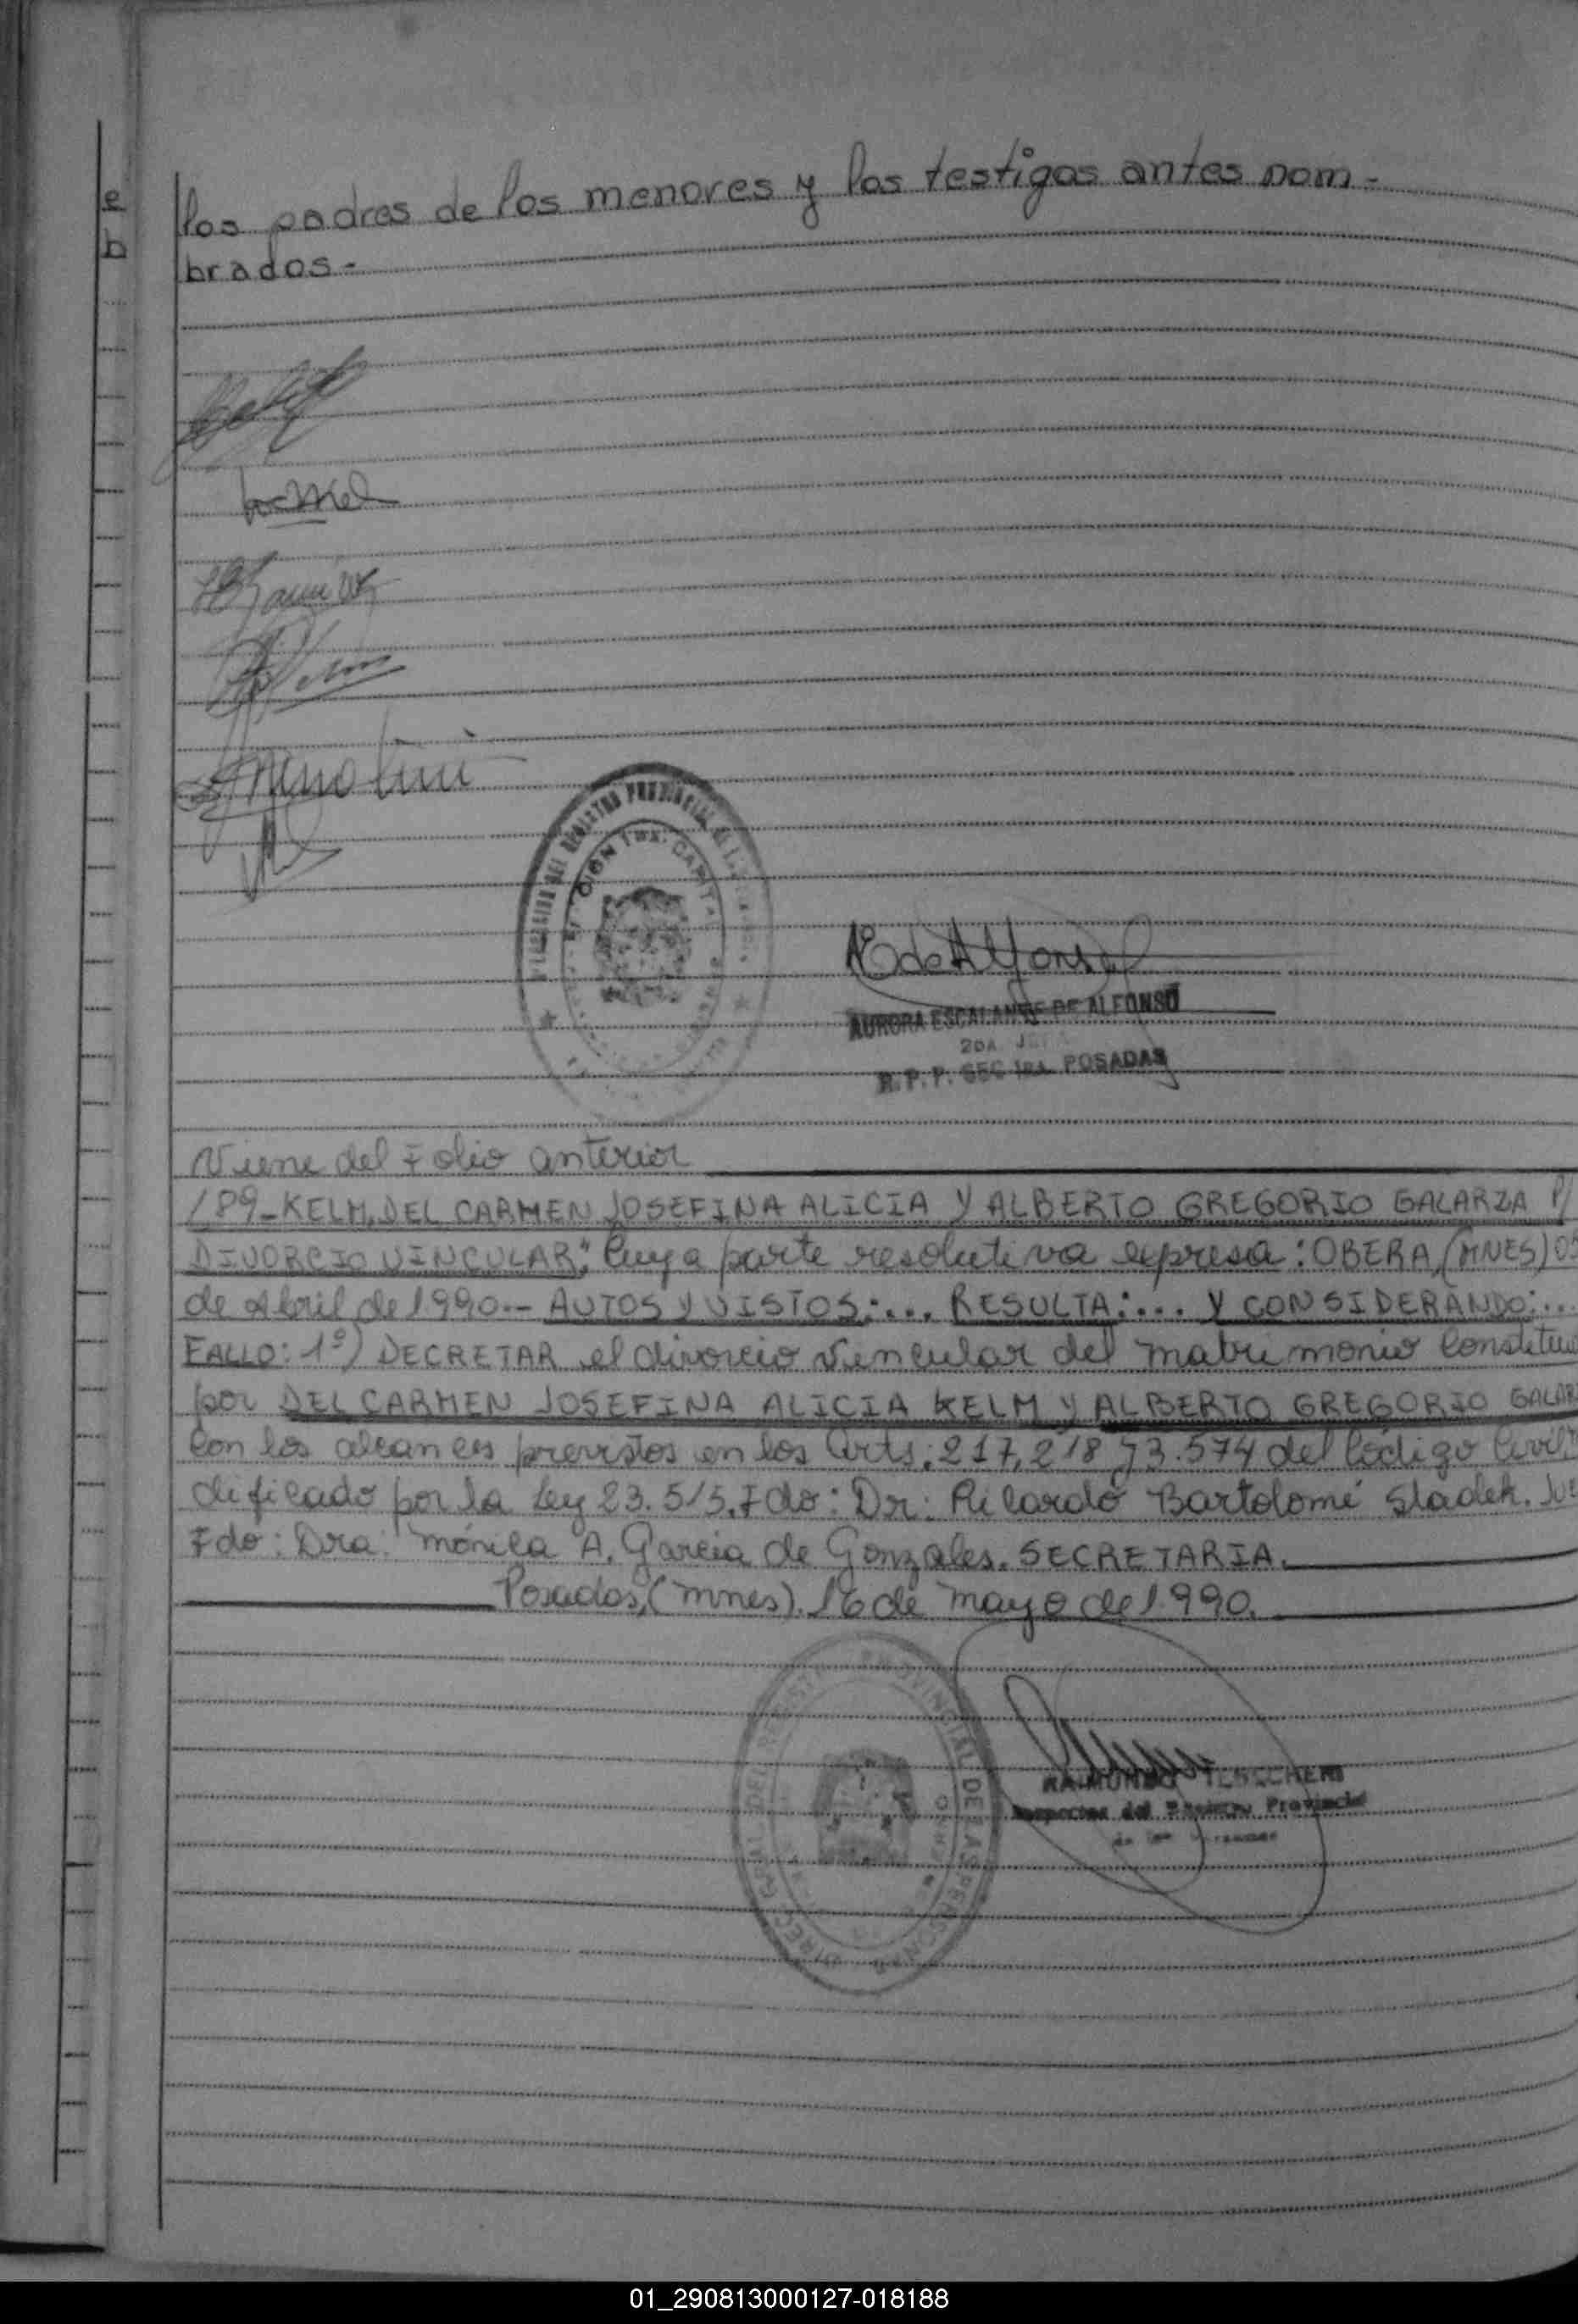 e
b
los padres de los menores y los testigos antes nom-
brados.-
AURORA ESCALANTE DE ALFONSO
2DA JEFA
R.P.P. SEC 1RA. POSADAS
Viene del Folio anterior
/89-KELM, DEL CARMEN JOSEFINA ALICIA Y ALBERTO GREGORIO GALARZA P/
DIVORCIO VINCULAR", Cuya parte resolutiva expresa: OBERA, (MNES) 05
de Abril de 1990.- AUTOS Y VISTOS:... RESULTA:... Y CONSIDERANDO:...
FALLO: 1º) DECRETAR el divorcio Vincular del matrimonio Constitui
por DEL CARMEN JOSEFINA ALICIA KELM Y ALBERTO GREGORIO GALAR
Con los alcances previstos en los Arts. 217, 218 y 3.574 del Código Civil,
dificado por la Ley 23.515. Fdo: Dr: Ricardo Bartolomé Sladek. Jue
Fdo: Dra: Mónica A. Garcia de Gonzales. SECRETARIA.
Posadas, (mnes). 16 de mayo de 1.990.
PROVINCIAL DE LAS PERSONAS
RAIMUNDO
Inspector del Registro Provincial
de las Personas
01_290813000127-018188